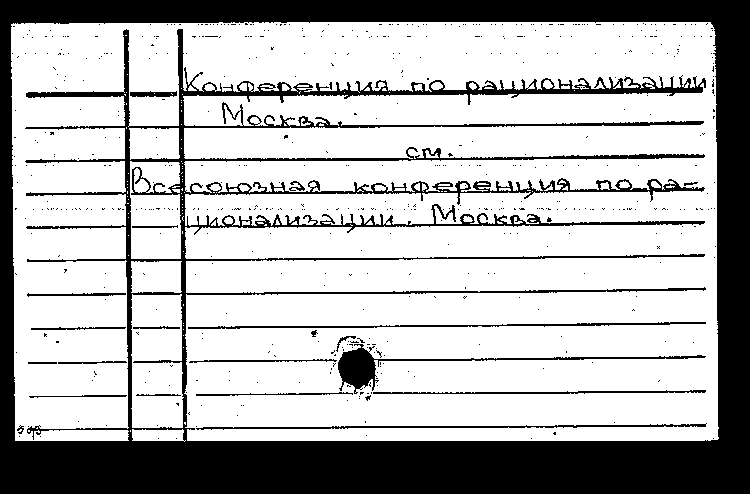 Конференция по рационализации
Москва.
см.
Всесоюзная конференция по ра=
ционализации. Москва.